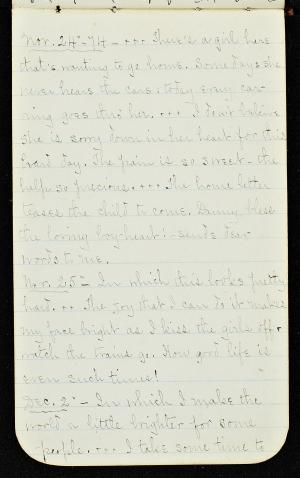 Nov. 24-74 - ... There's a girl here
that's wanting to go home. Some days she
never hears the cars: today every car-
ring goes thro' her. ... I don't believe
she is sorry down in her heart for this
hard day. The pain is so sweet - the
help so precious. ... The home letter
teases the child to come. Bunny, bless
the loving boy-heart! - sends dear
words to me.
Nov. 25 - In which this looks pretty
hard. .. The joy that I can do it makes
my face bright as I kiss the girls off &
watch the trains go. How good life is
even such times!
Dec. 2 - In which I make the
world a little brighter for some
people. ... I take some time to